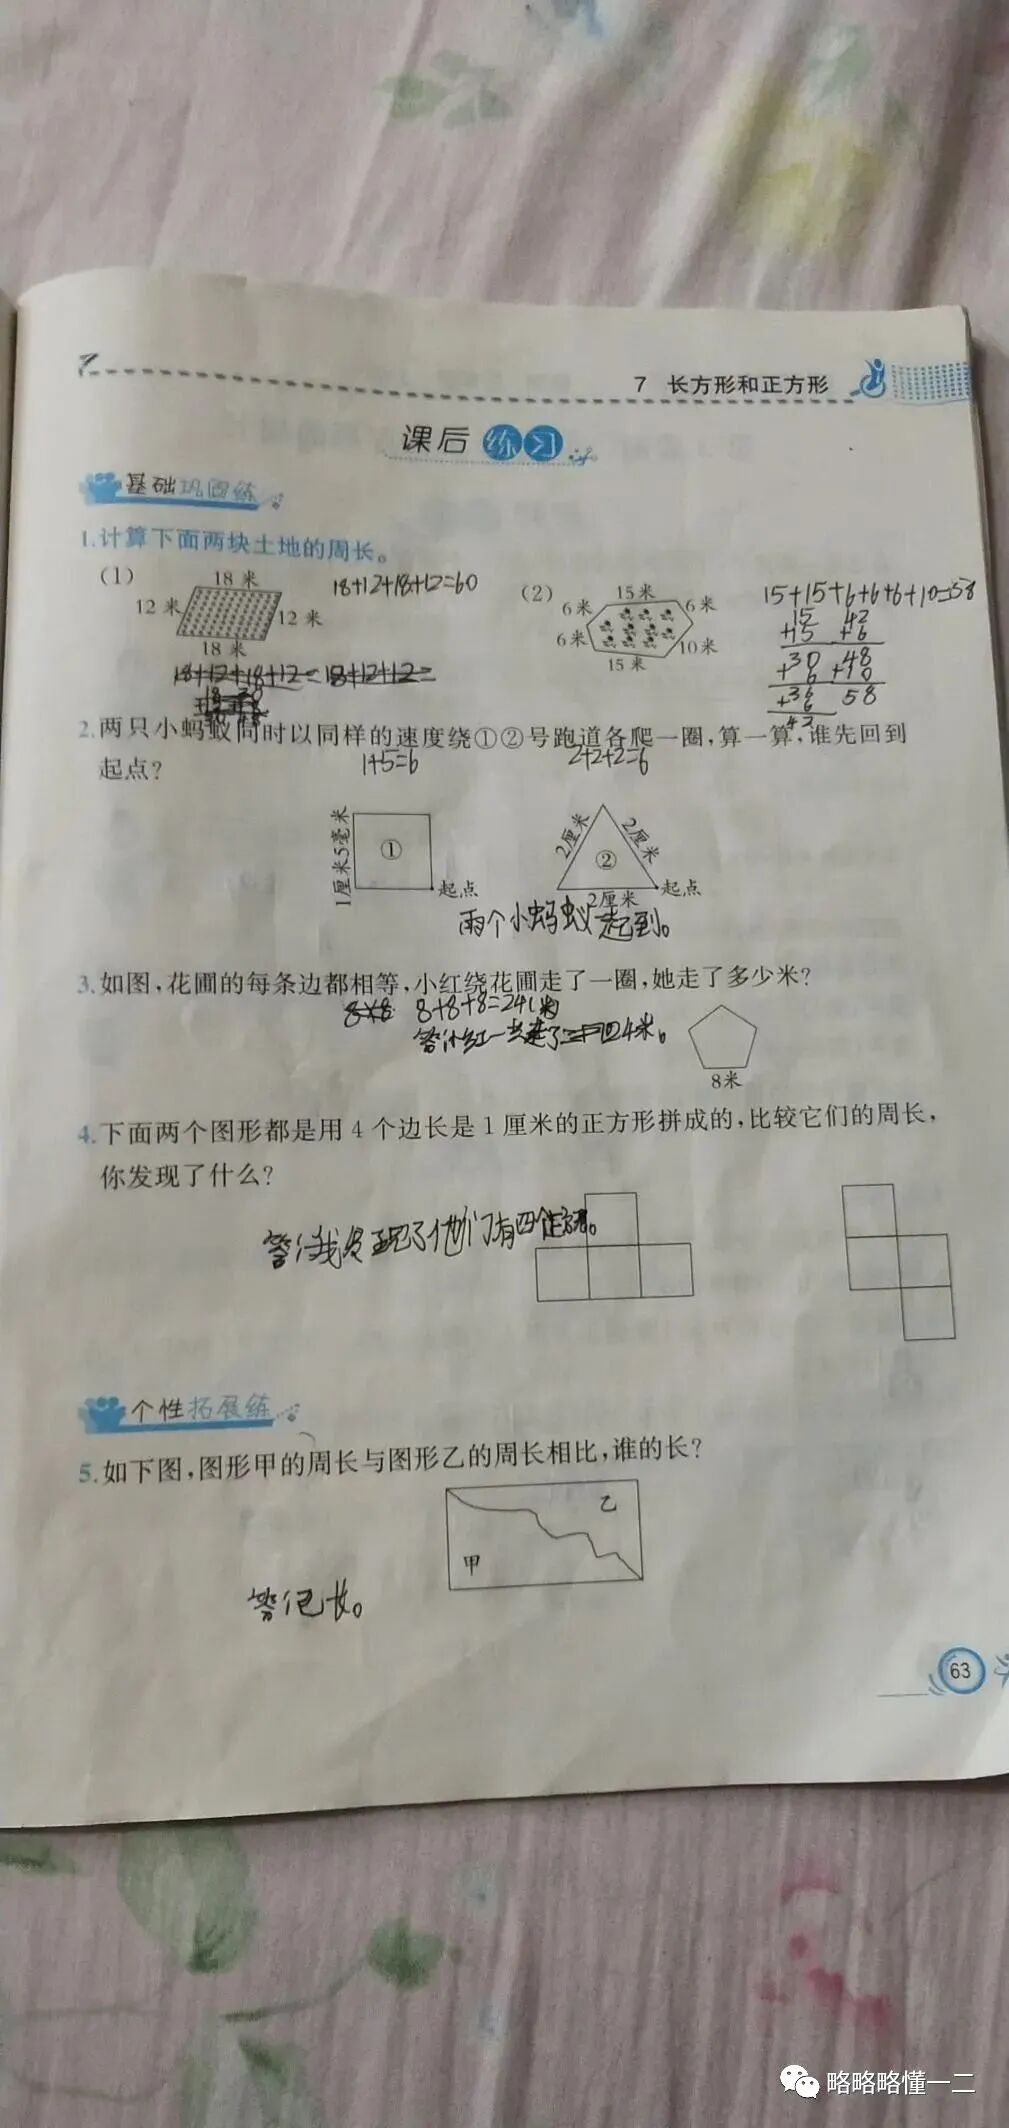 7 长方形和正方形
课后练习
基础巩固练
1.计算下面两块土地的周长。
(1)
18米
12米
12米
18米
18+12+18+12=60
18+12+18+12=18+12+12=
(2)
15米
6米
6米
6米
10米
15米
15+15+6+6+6+10=58
15 42
+15 +6
30 48
+6 +10
36 58
+6
42
2.两只小蚂蚁同时以同样的速度绕①②号跑道各爬一圈,算一算,谁先回到
起点?
1+5=6
2+2+2=6
1厘米5毫米
①
起点
2厘米
2厘米
②
2厘米
起点
两个小蚂蚁一起到。
3.如图,花圃的每条边都相等,小红绕花圃走了一圈,她走了多少米?
8×8 8+8+8=24(米)
8米
4.下面两个图形都是用4个边长是1厘米的正方形拼成的,比较它们的周长,
你发现了什么?
答:我发现了他们有四个正方形。
个性拓展练
5.如下图,图形甲的周长与图形乙的周长相比,谁的长?
乙
甲
63
略略略懂一二